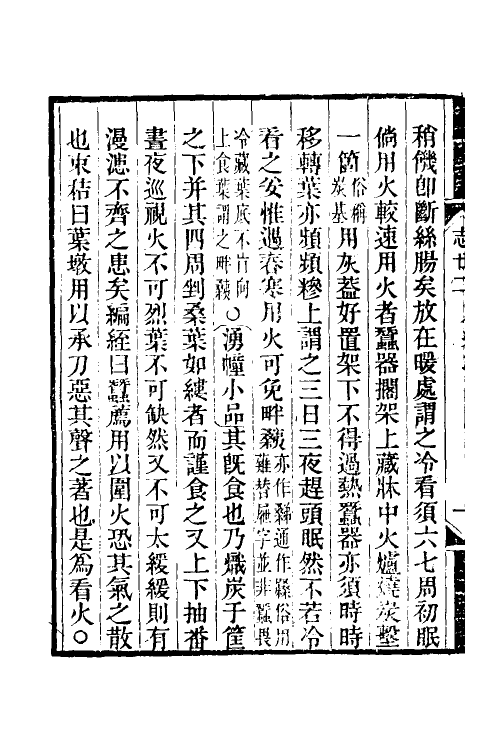 稍饑卽斷絲腸矣放在暖處謂之冷看須六七周初眠
倘用火較速用火者蠶器擱架上藏牀中火爐燒炭墼
一箇俗稱炭基用灰葢好置架下不得過熱蠶器亦須時時
移轉葉亦頻頻糝上謂之三日三夜趕頭眠然不若冷
看之妥惟遇春寒用火可免畔亦作通作繇俗用字並非蠶畏
冷藏葉底不肯向上食葉謂之畔○湧幢小品其旣食也乃熾炭于筐
之下并其四周剉桑葉如縷者而謹食之又上下抽番
晝夜巡視火不可烈葉不可缺然又不可太緩緩則有
漫漶不齊之患矣編絰曰蠶薦用以圍火恐其氣之散
也束秸曰葉墩用以承刀惡其聲之著也是爲看火○